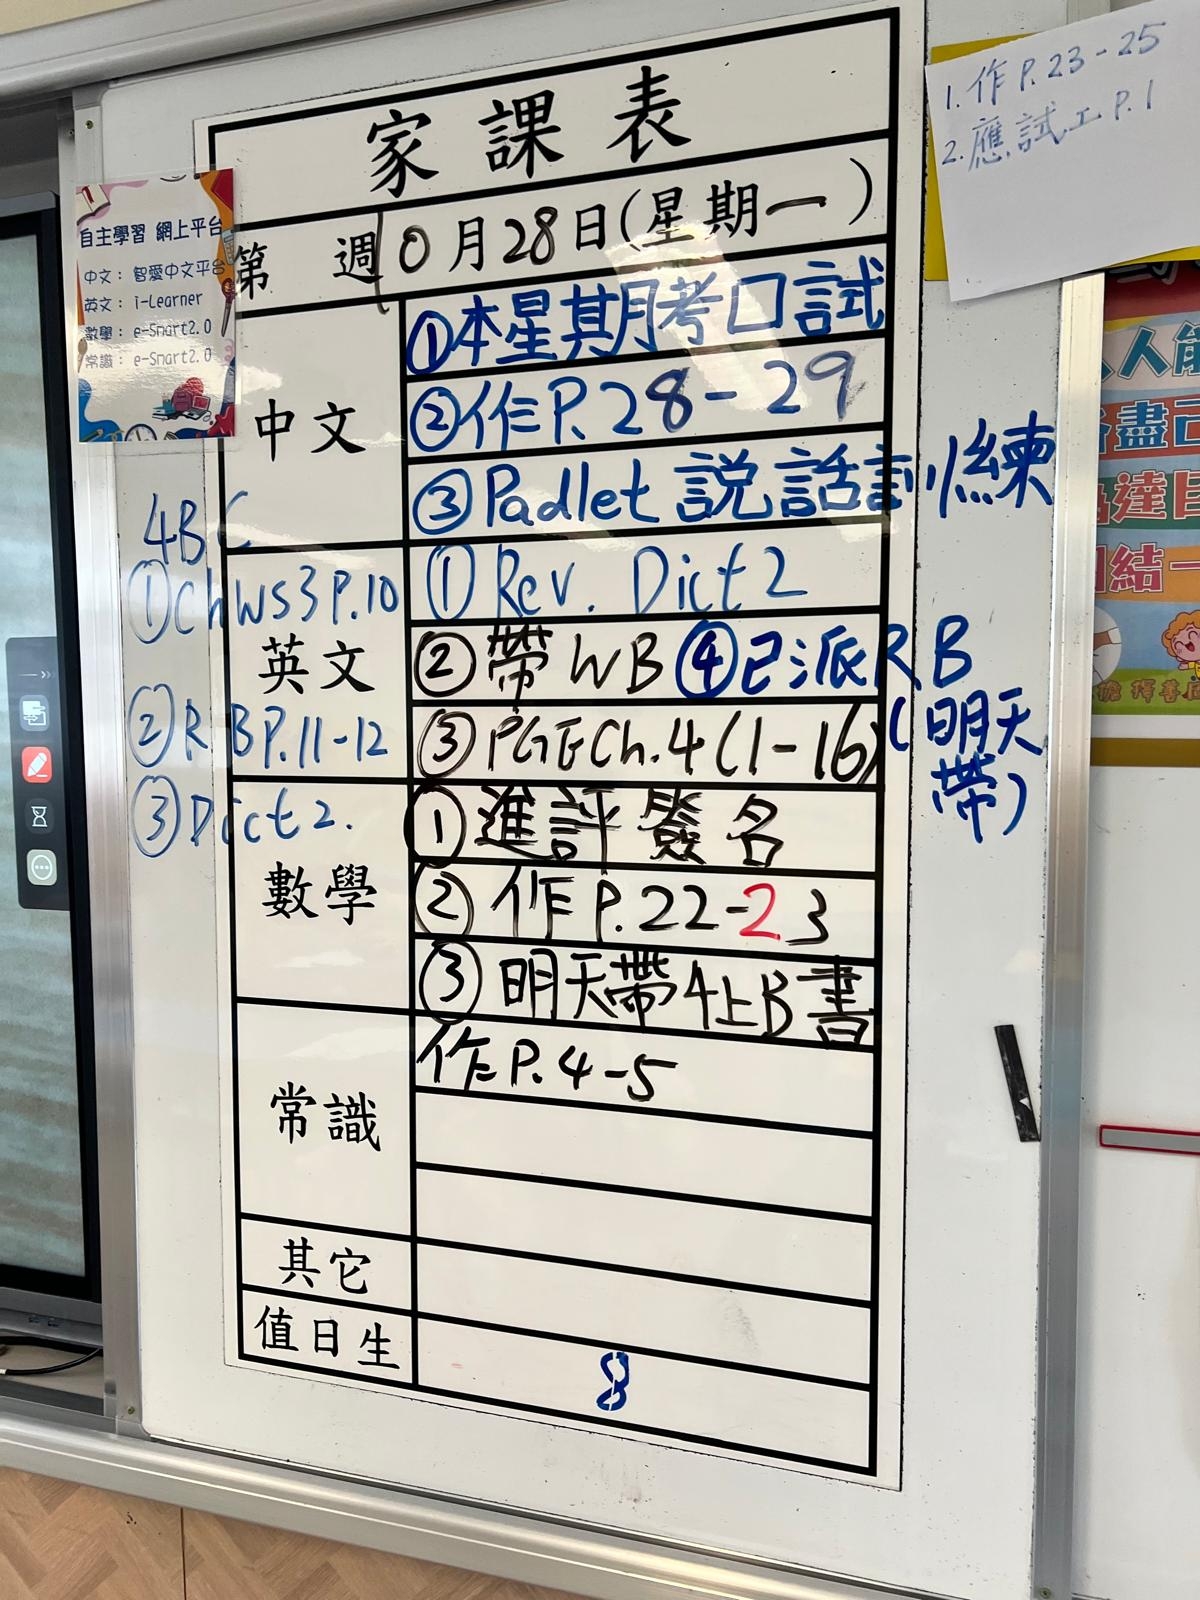 家課表
第 週 10月28日(星期一)
中文
①本星期月考口試
②作P.28-29
③Padlet 説話訓練
英文
①Rev. Dict 2
②帶WB ④已派RB
(明天
帶)
③PGE Ch.4(1-16)
數學
①進評簽名
②作P.22-23
③明天帶4上B書
常識
作P.4-5
其它
值日生
8
4BC
①Ch WS3 P.10
②RB P.11-12
③Dict 2.
自主學習 網上平台
中文：智愛中文平台
英文：i-Learner
數學：e-Smart2.0
常識：e-Smart2.0
1. 作P.23-25
2. 應試工P.1
人人能
盡己
達目
結一